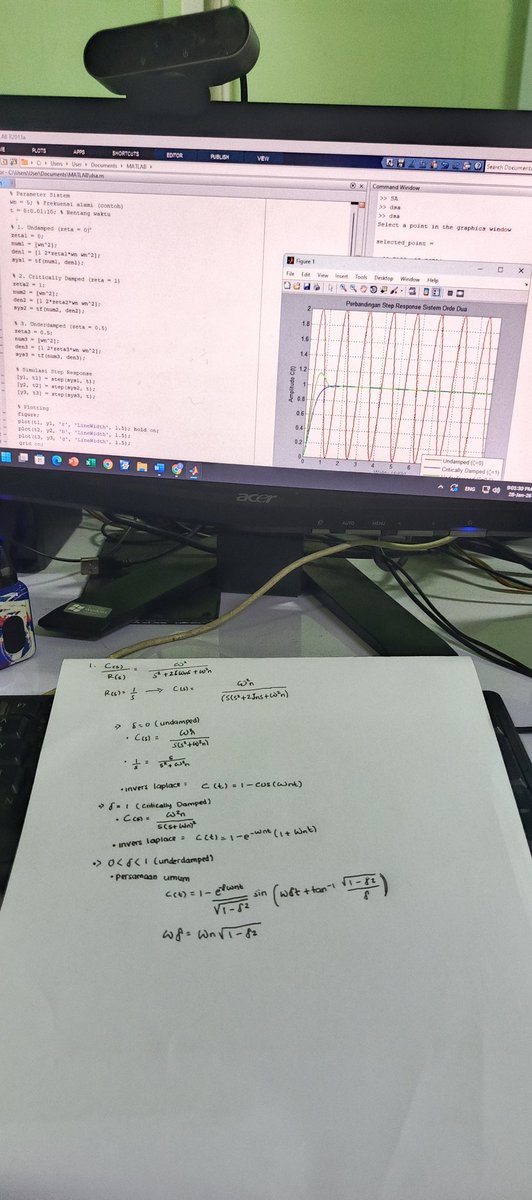 PLOTS APPS SHORTCUTS EDITOR PUBLISH VIEW
Search Documen
C: Users User Documents MATLAB
C:\Users\User\Documents\MATLAB\dsa.m
% Parameter Sistem
wn = 5; % Frekuensi alami (contoh)
t = 0:0.01:10; % Rentang waktu
% 1. Undamped (zeta = 0)
zeta1 = 0;
num1 = [wn^2];
den1 = [1 2*zeta1*wn wn^2];
sys1 = tf(num1, den1);
% 2. Critically Damped (zeta = 1)
zeta2 = 1;
num2 = [wn^2];
den2 = [1 2*zeta2*wn wn^2];
sys2 = tf(num2, den2);
% 3. Underdamped (zeta = 0.5)
zeta3 = 0.5;
num3 = [wn^2];
den3 = [1 2*zeta3*wn wn^2];
sys3 = tf(num3, den3);
% Simulasi Step Response
[y1, t1] = step(sys1, t);
[y2, t2] = step(sys2, t);
[y3, t3] = step(sys3, t);
% Plotting
figure;
plot(t1, y1, 'r', 'LineWidth', 1.5); hold on;
plot(t2, y2, 'b', 'LineWidth', 1.5);
plot(t3, y3, 'g', 'LineWidth', 1.5);
grid on;
Command Window
>> SA
>> dsa
>> dsa
Select a point in the graphics window
selected_point =
Figure 1
File Edit View Insert Tools Desktop Window Help
Perbandingan Step Response Sistem Orde Dua
Amplitudo C(t)
2
1.8
1.6
1.4
1.2
1
0.8
0.6
0.4
0.2
0
0 1 2 3 4 5 6
Undamped (ζ=0)
Critically Damped (ζ=1)
ENG
9:05:30 PM
28-Jan-26
acer
AUTO MENU
1. C(s)/R(s) = ω²/s² + 2ζωns + ω²n
R(s) = 1/s → C(s) = ω²n/(s(s²+2ζns+ω²n)
⇒ δ=0 (undamped)
• C(s) = ω²n/s(s²+ω²n)
• 1/s = s/s²+ω²n
• invers laplace = C(t) = 1 - cos(ωnt)
⇒ δ = 1 (Critically Damped)
• C(s) = ω²n/s(s+ωn)²
• invers laplace = C(t) = 1 - e-ωnt (1 + ωnt)
⇒ 0 < δ < 1 (underdamped)
• persamaan umum
C(t) = 1 - eδωnt/√1-δ2 sin (ωδt + tan-1 √1-δ2/δ)
ωδ = ωn √1-δ2